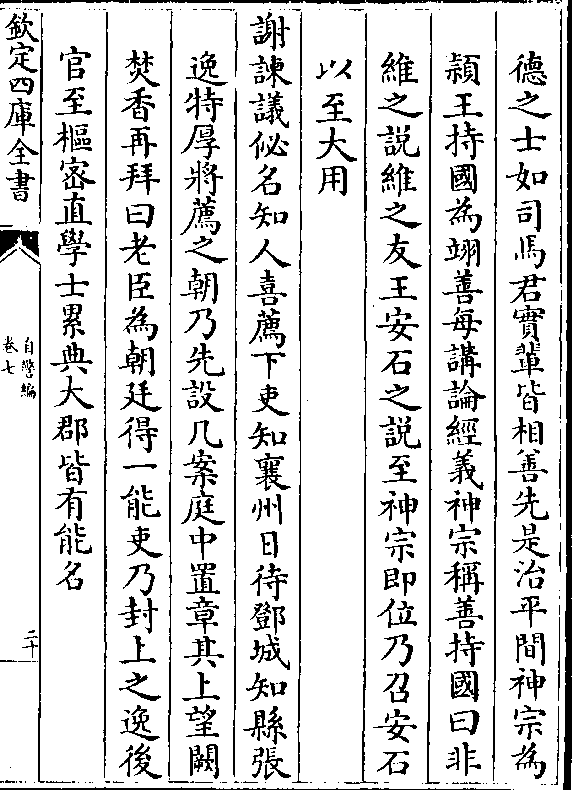 德之士如司馬君實輩皆相善先是治平間神宗為
穎王持國為翊善每講論經義神宗稱善持國曰非
維之説維之友王安石之説至神宗即位乃召安石
以至大用
謝諫議泌名知人喜薦下吏知襄州日待鄧城知縣張
逸特厚將薦之朝乃先設几案庭中置章其上望闕
焚香再拜曰老臣為朝廷得一能吏乃封上之逸後
官至樞密直學士累典大郡皆有能名
欽定四庫全書
自警編
卷七
二十